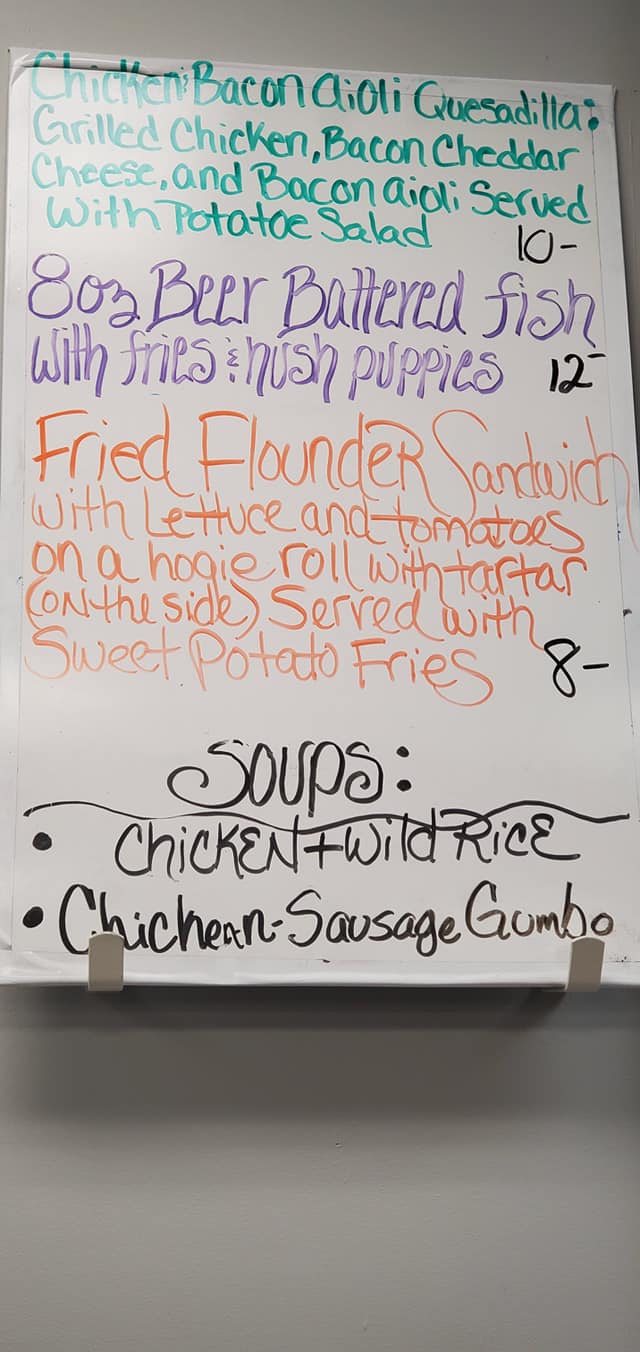 Chicken Bacon aioli Quesadilla:
Grilled Chicken, Bacon Cheddar
Cheese, and Bacon aioli Served
With Potatoe Salad 10-
8oz Beer Battered fish
with fries & hush puppies 12-
Fried Flounder Sandwich
with Lettuce and tomatoes
on a hogie roll with tartar
(on the side) Served with
Sweet Potato Fries 8-
SOUPS:
• CHICKEN + Wild RICE
• Chicken-Sausage Gumbo